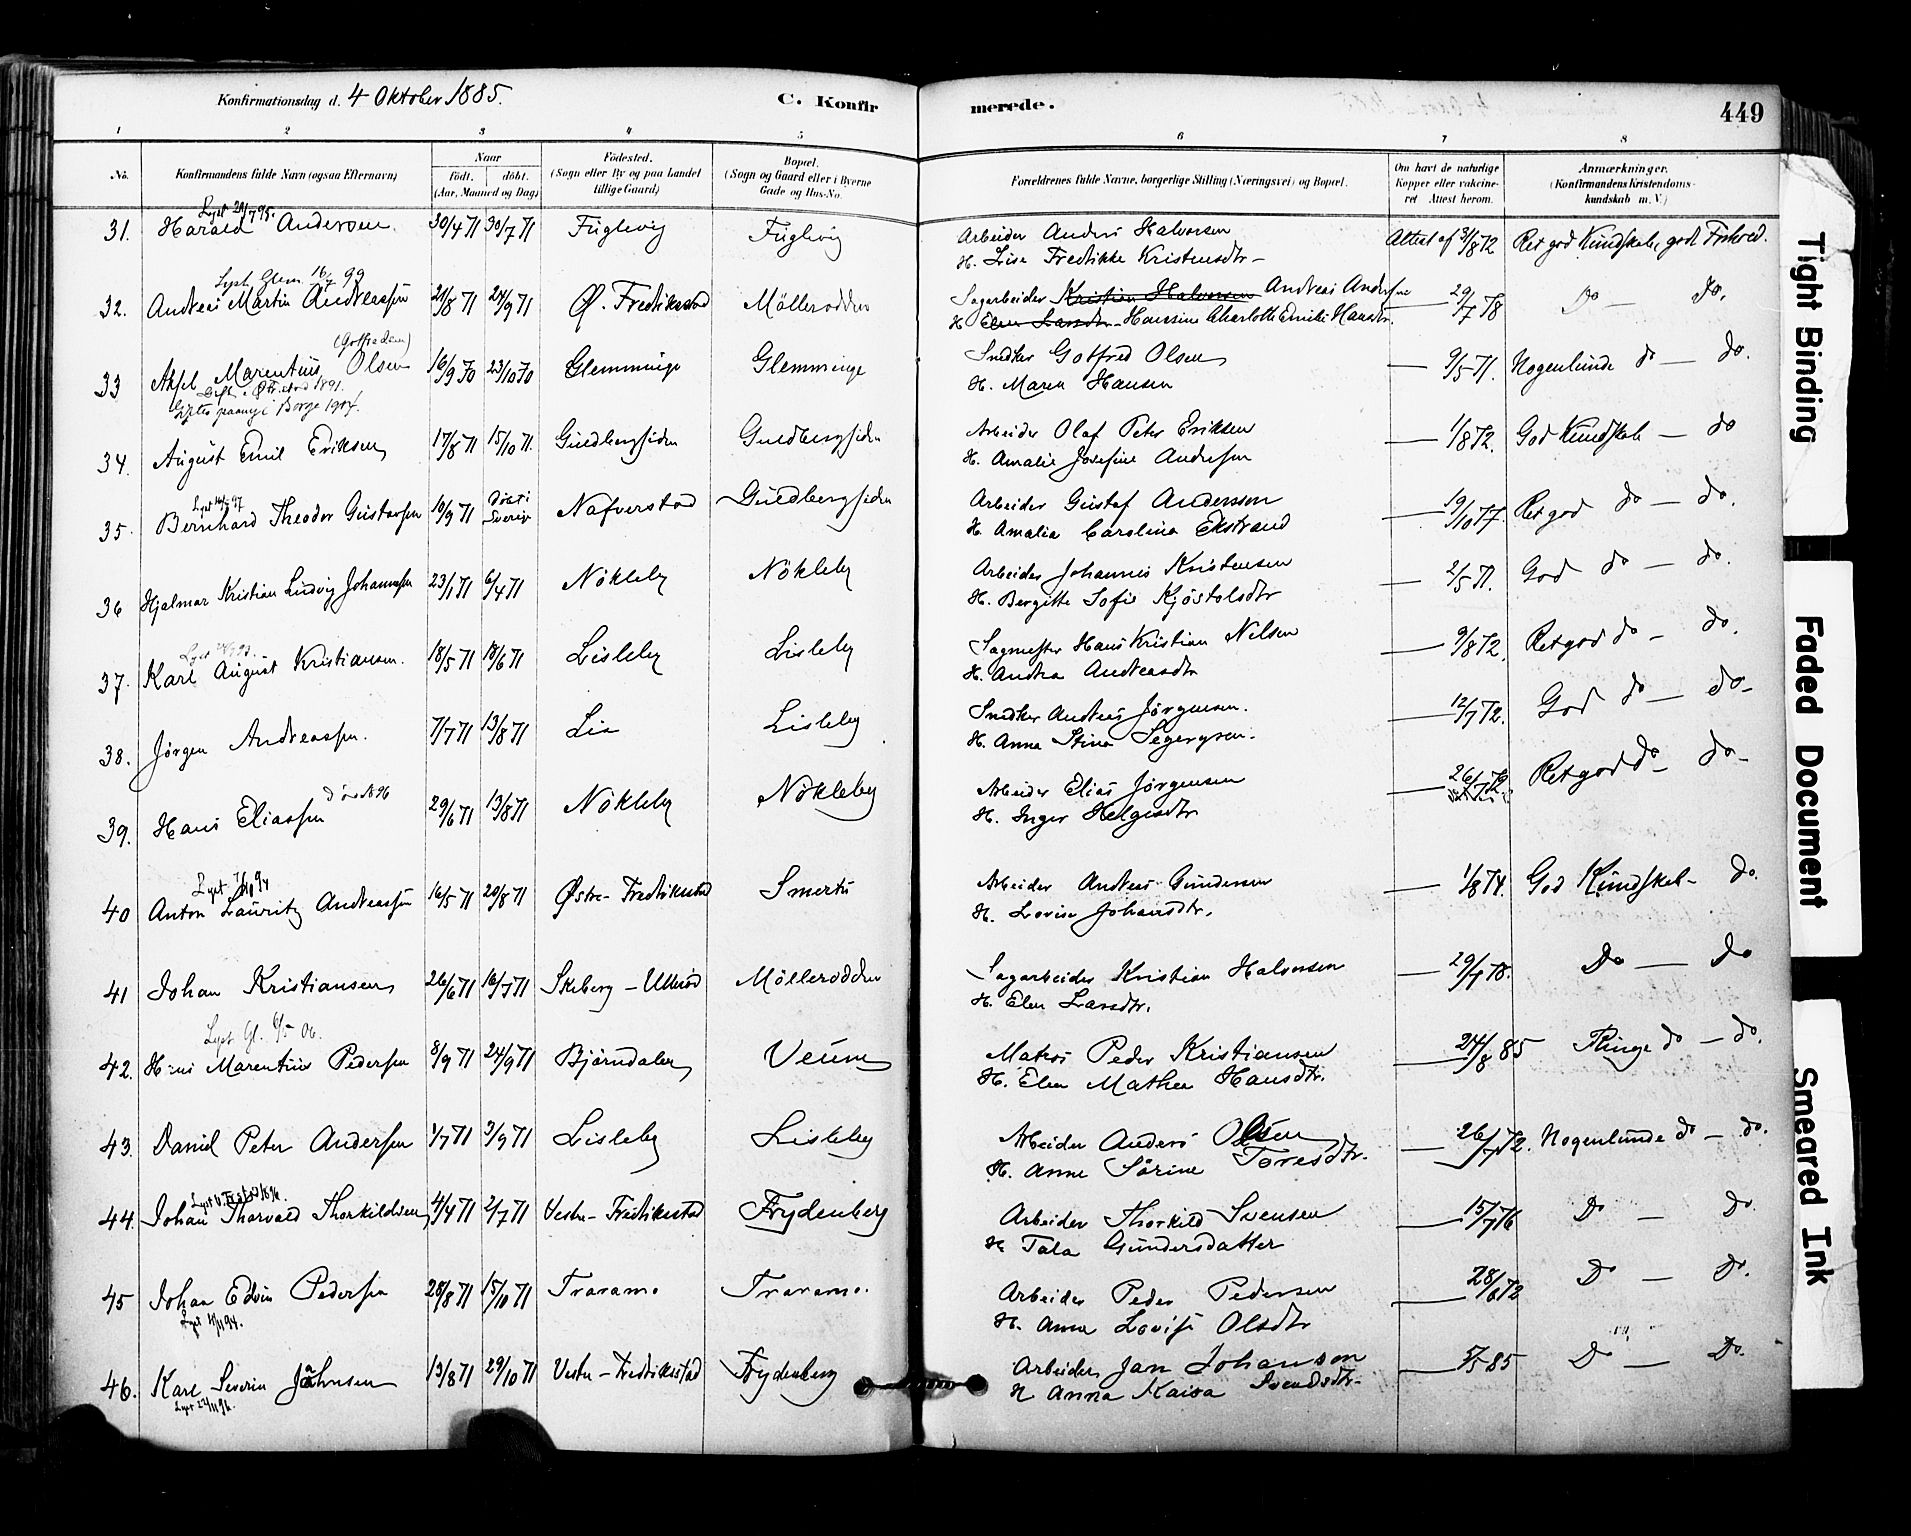 Konfirmationsdag d. 4 Oktober 1885.
C. Konfirmerede.
449
1 2 3 4 5 6 7 8
No.
Konfirmandens fulde Navn (ogsaa Efternavn)
Naar
født. døbt.
(Aar, Maaned og Dag)
Födested.
(Sogn eller By og paa Landet
tillige Gaard)
Bopæl.
(Sogn og Gaard eller i Byerne
Gade og Hus-No.
Forældrenes fulde Navne, borgerlige Stilling (Næringsvei) og Bopæl.
Om havt de naturlige
Kopper eller vakcine-
ret Attest herom.
Anmærkninger.
(Konfirmandens Kristendoms-
kundskab m. V.)
Lyst 20/7 95.
31. Harald Andersen. 30/4 71 30/7 71 Fuglevig Fuglevig Arbeider Anders Halvorsen Attest af 31/8 72 Ret god Kundskab, god Forhold.
H. Lise Fredrikke Kristensdtr
Lyst Glem. 16/7 99
32. Andreas Martin Andreassen 21/8 71 24/9 71 Ø. Fredriksstad Mölleroddin Sagarbeider Kristian Halvorsen Andreas Andersen — 29/7 78 Do — Do.
H. Elen Larsdtr. Hansine Charlotte Emilie Hansdtr.
(Gotfredsen)
33 Aksel Marentius Olsen 16/9 70 23/10 70 Glemminge Glemminge Snedker Gotfred Olsen — 9/5 71. Nogenlunde do — do.
H. Maren Hansen
Gift i 1891.
Giftes paany i Borge 1904.
34. August Emil Eriksen 17/8 71 15/10 71. Guldbergsiden Guldbergsiden Arbeider Olaf Peter Eriksen — 1/8 72. God Kundskab — do
H. Amalie Josefine Andresen
Lyst 97
35. Bernhard Theodor Gustavsen 10/9 71 Döbt i Sverig Nafverstad Guldbergsiden Arbeider Gustaf Andersson — 19/10 77. Ret god do — do.
H. Amalia Carolina Ekstrand
36 Hjalmar Kristian Ludvig Johannesen 23/1 71 6/4 71 Nökleby Nökleby Arbeider Johannes Kristensen — 2/5 71. God do — do.
H. Bergitte Sofie Kjöstolsdtr
37. Karl August Kristiansen. 18/5 71 18/6 71 Lisleby Lisleby Sagmester Hans Kristian Nilsen — 9/8 72. Ret god do — do.
H. Andrea Andreasdtr
38. Jörgen Andreassen. 7/7 71 13/8 71 Lie Lisleby Snedker Andreas Jörgensen. — 12/7 72. God do — do-
H. Anna Stina Segergren.
død 1896
39. Hans Eliassen 29/6 71 13/8 71 Nökleby Nökleby Arbeider Elias Jørgensen — 26/7 72. Ret god do — do-
H. Inger Helgesdtr
Lyst 7/10 94
40 Anton Lauritz Andreassen 16/5 71 20/8 71 Østre-Fredriksstad Smertu Arbeider Andreas Gundersen — 1/8 74. God Kundskab- do.
H. Lovise Johansdtr.
41 Johan Kristiansen 26/6 71 16/7 71 Skeberg - Ulleröd Mölleroddin Sagarbeider Kristian Halvorsen — 29/7 78. Do — do
H. Elen Larsdtr.
Lyst Gl. 6/5 06.
42. Hans Marentius Pedersen 8/9 71 24/9 71 Bjørndalen Veum Matros Peder Kristiansen — 24/8 85 Ringe do — do.
H. Elen Mathea Hansdtr.
43. Daniel Peter Andersen 1/7 71 3/9 71 Lisleby Lisleby Arbeider Anders Olsen — 26/7 72. Nogenlunde do — do.
H. Anne Sörine Toresdtr.
44. Johan Thorvald Thorkildsen 4/4 71 2/7 71 Vestre-Fredriksstad Frydenberg Arbeider Thorkild Svensen — 15/7 76 Do — Do.
H. Tala Gundersdatter
45 Johan Edvin Pedersen 28/8 71 15/10 71 Traramo Traramo. Arbeider Peder Pedersen — 28/6 72 Do — Do.
H. Anna Lovise Olsdtr
Lyst 94.
46. Karl Severin Jahnsen 13/8 71 29/10 71 Vestre-Fredriksstad Frydenberg Arbeider Jan Johanson — 5/5 85 Do — Do.
H. Anna Kaisa Svendsdtr.
Lyst 22/11 96.
Tight Binding
Faded Document
Smeared Ink